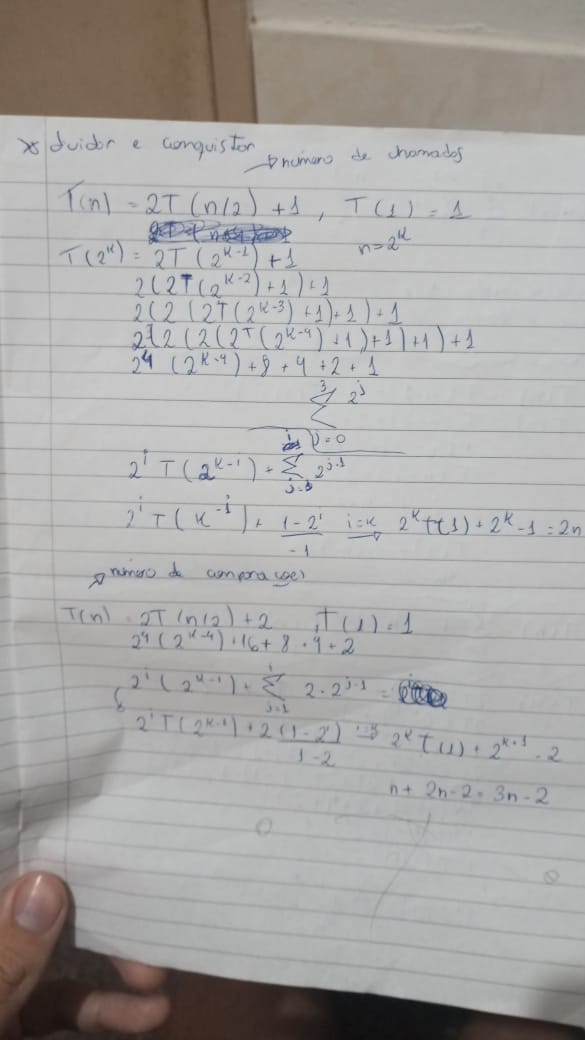 * dividir e conquistar
→ número de chamadas
T(n) = 2T(n/2) + 1, T(1) = 1
n = 2^k
T(2^k) = 2T(2^{k-1}) + 1
2(2T(2^{k-2}) + 1) + 1
2(2(2T(2^{k-3}) + 1) + 1) + 1
2(2(2(2T(2^{k-4}) + 1) + 1) + 1) + 1
2^4 (2^{k-4}) + 8 + 4 + 2 + 1
∑_{j=0}^{3} 2^j
2^i T(2^{k-i}) + ∑_{j=1}^{i} 2^{j-1}
2^i T(k^{-i}) + (1-2^i)/-1 i=k → 2^k T(1) + 2^k - 1 = 2n
→ número de comparações
T(n) = 2T(n/2) + 2, T(1) = 1
2^4 (2^{k-4}) + 16 + 8 + 4 + 2
2^i (2^{k-i}) + ∑_{j=1}^{i} 2 · 2^{j-1} =
2^i T(2^{k-i}) + 2(1-2^i)/(1-2) i=k → 2^k T(1) + 2^{k+1} - 2
n + 2n - 2 = 3n - 2